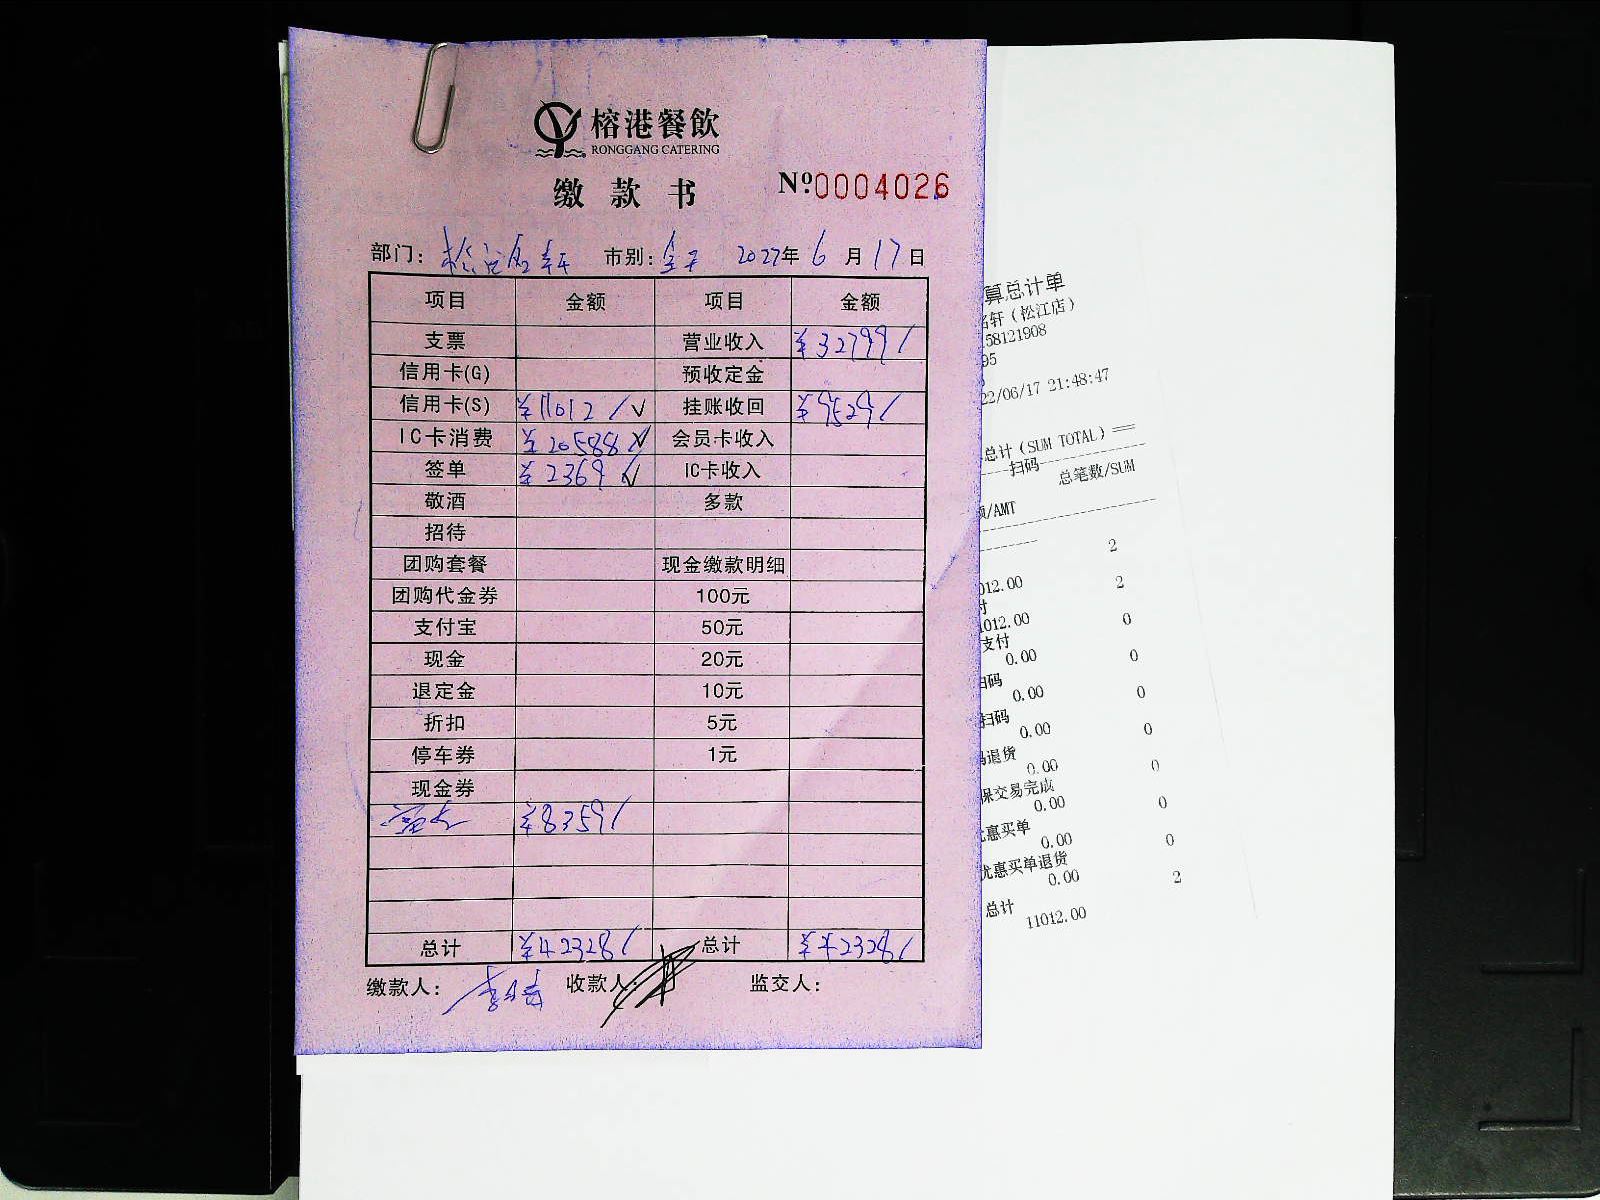 榕港餐飲
RONGGANG CATERING
缴款书 Nº0004026
部门： 市别：全天 2022年6月17日
项目 金额 项目 金额
支票 营业收入 ¥32799/
信用卡(G) 预收定金
信用卡(S) ¥11012/√ 挂账收回 ¥9529/
IC卡消费 ¥20588√ 会员卡收入
签单 ¥2369√ IC卡收入
敬酒 多款
招待
团购套餐 现金缴款明细
团购代金券 100元
支付宝 50元
现金 20元
退定金 10元
折扣 5元
停车券 1元
现金券
¥8359/
总计 ¥42328/ 总计 ¥42328/
缴款人： 收款人： 监交人：
算总计单
名轩（松江店）
58121908
95
22/06/17 21:48:47
总计（SUM TOTAL）==
扫码
总笔数/SUM
额/AMT
2
012.00
付 2
1012.00
支付 0
0.00
扫码 0
0.00
扫码 0
0.00
码退货 0
0.00
保交易完成 0
0.00
优惠买单 0
0.00
优惠买单退货 0
0.00
总计 2
11012.00